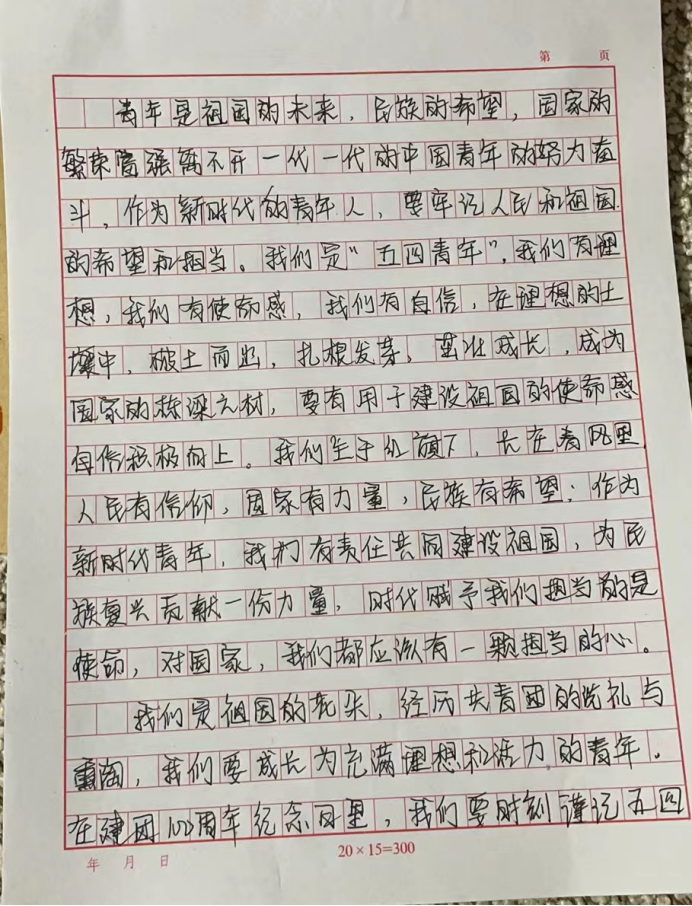 第 页
青年是祖国的未来，民族的希望，国家的
繁荣富强离不开一代一代的中国青年的努力奋
斗，作为新时代的青年人，要牢记人民和祖国
的希望和担当。我们是“五四青年”，我们有理
想，我们有使命感，我们有自信，在理想的土
壤中，破土而出，扎根发芽，茁壮成长，成为
国家的栋梁之材，要有用于建设祖国的使命感
自信积极向上。我们生于红旗下，长在春风里
人民有信仰，国家有力量，民族有希望；作为
新时代青年，我们有责任共同建设祖国，为民
族复兴贡献一份力量，时代赋予我们担当的是
使命，对国家，我们都应该有一颗担当的心。
我们是祖国的花朵，经历共青团的洗礼与
熏陶，我们要成长为充满理想和活力的青年。
在建团100周年纪念日里，我们要时刻谨记五四
年 月 日
20×15=300